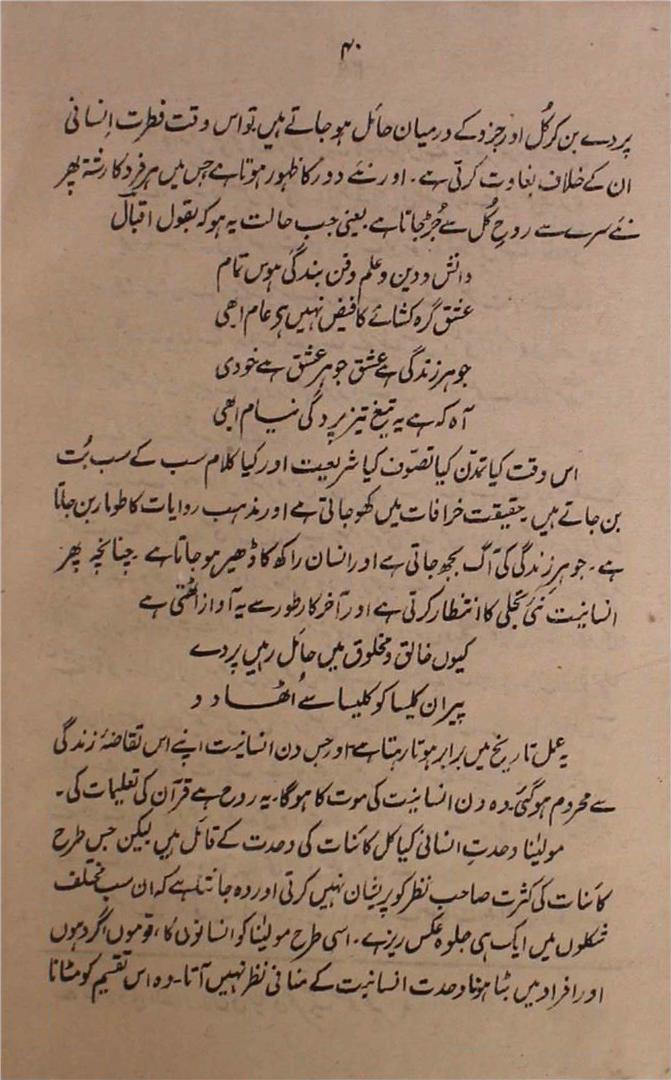 ۴۰
پردے بن کر کُل اور جزو کے درمیان حائل ہو جاتے ہیں تو اس وقت فطرت اِنسانی
ان کے خلاف بغاوت کرتی ہے۔ اور نئے دور کا ظہور ہوتا ہے جس میں ہر فرد کا رشتہ پھر
نئے سرے سے روحِ کُل سے جُڑ جاتا ہے یعنی جب حالت یہ ہو کہ بقول اقبال
دانش و دین و علم و فن بندگی ہوس تمام
عشق گرہ کشائے کا فیض نہیں ہی عام ابھی
جوہر زندگی ہے عشق جوہر عشق ہے خودی
آہ کہ ہے یہ تیغ تیز پردگی نیام ابھی
اس وقت کیا تمدّن کیا تصوّف کیا شریعیت اور کیا کلام سب کے سب بُت
بن جاتے ہیں۔ حقیقت خرافات میں کھو جاتی ہے اور مذہب روایات کا طومار بن جاتا
ہے۔ جوہرِ زندگی کی آگ بجھ جاتی ہے اور انسان راکھ کا ڈھیر ہو جاتا ہے۔ چنانچہ پھر
انسانیت نئی تجلی کا انتظار کرتی ہے اور آخر کار طور سے یہ آواز اٹھتی ہے
کیوں خالق و مخلوق میں حائل رہیں پردے
پیران کلیسا کو کلیسا سے اُٹھا دو
یہ عمل تاریخ میں برابر ہوتا رہتا ہے اور جس دن انسانیت اپنے اس تقاضۂ زندگی
سے محروم ہو گئی۔ وہ دن انسانیت کی موت کا ہوگا۔ یہ روح ہے قرآن کی تعلیمات کی۔
مولینٰا وحدتِ اِنسانی کیا کل کائنات کی وحدت کے قائل ہیں لیکن جس طرح
کائنات کی کثرت صاحب نظر کو پریشان نہیں کرتی اور وہ جانتا ہے کہ ان سب مختلف
شکلوں میں ایک ہی جلوہ عکس ریز ہے۔ اسی طرح مولینٰا کو انسانوں کا، قوموں اگر دہوں
اور افراد میں بٹا ہونا وحدت انسانیت کے منافی نظر نہیں آتا۔ وہ اس تقسیم کو مٹانا